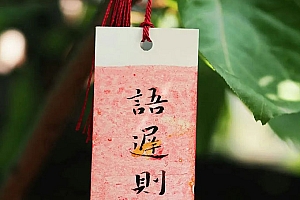 語遲則